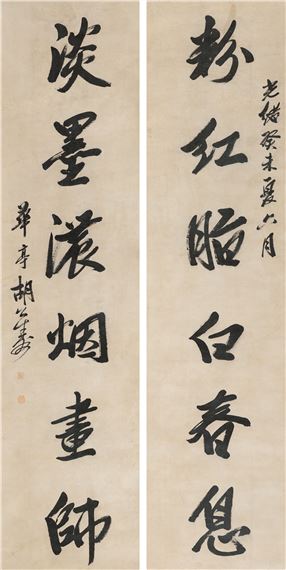 光緒癸未夏六月
粉紅脂白春息
淡墨濃烟畫師
華亭胡公壽